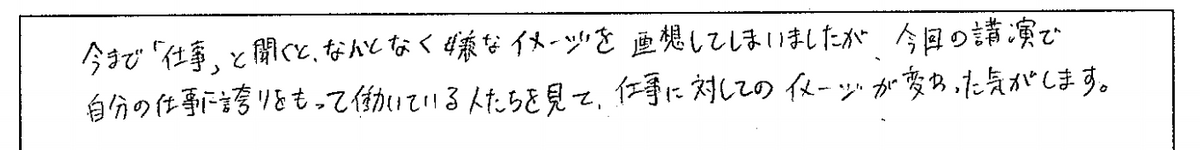 今まで「仕事」と聞くと、なんとなく嫌なイメージを画想してしまいましたが 今回の講演で
自分の仕事に誇りをもって働いている人たちを見て、仕事に対してのイメージが変わった気がします。